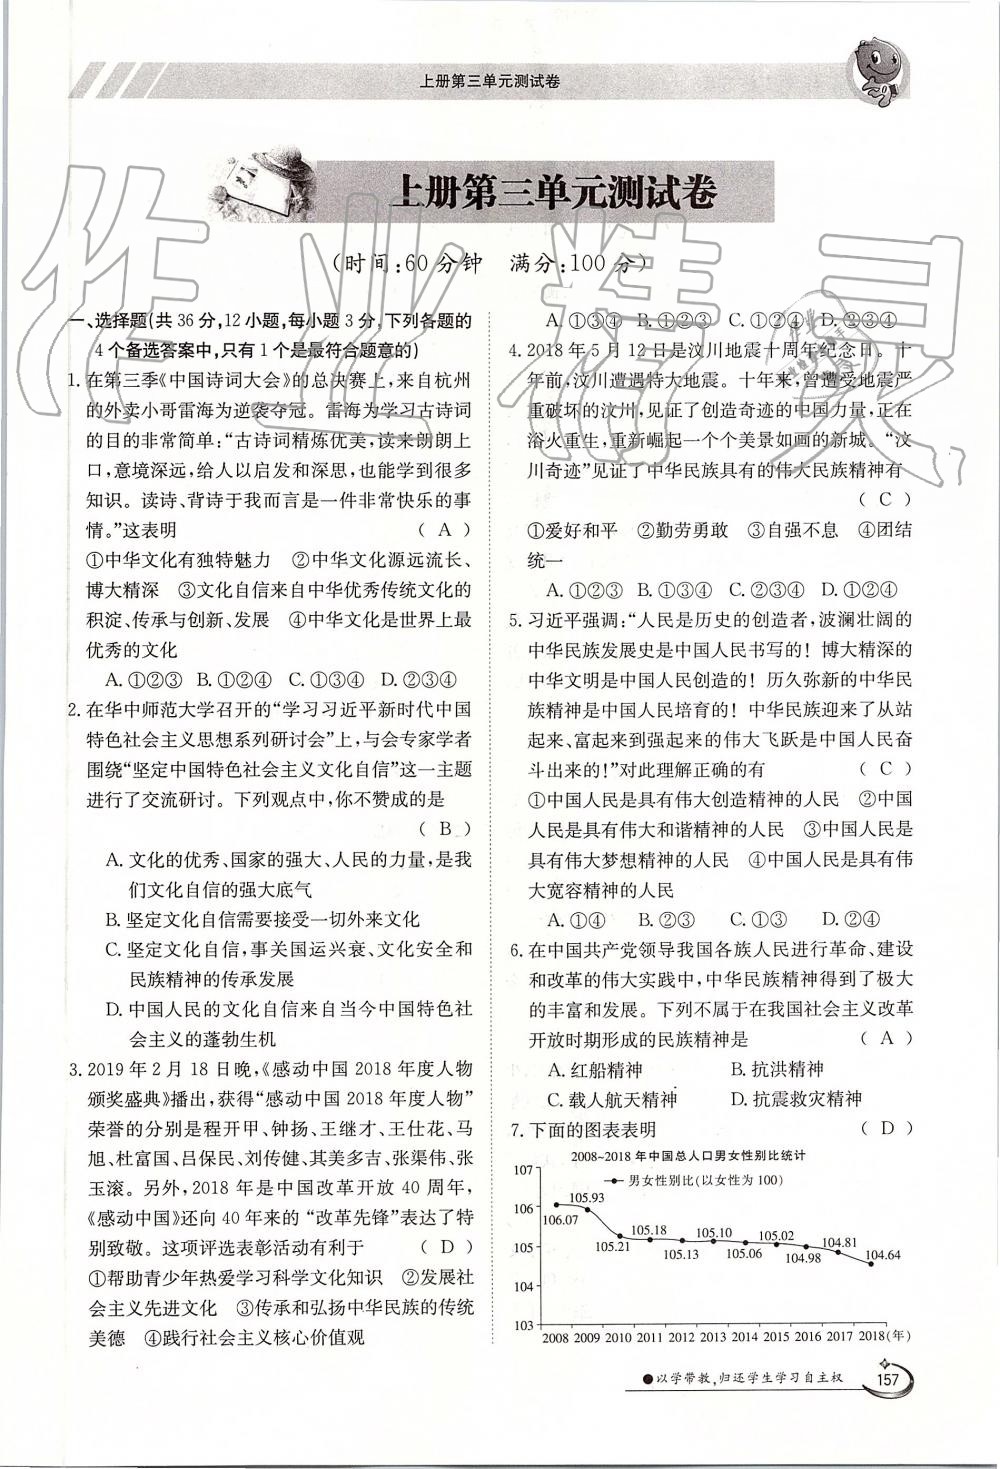 上册第三单元测试卷
上册第三单元测试卷
(时间:60分钟 满分:100分)
一、选择题(共36分,12小题,每小题3分,下列各题的
4个备选答案中,只有1个是最符合题意的)
1. 在第三季《中国诗词大会》的总决赛上,来自杭州
的外卖小哥雷海为逆袭夺冠。雷海为学习古诗词
的目的非常简单:“古诗词精炼优美,读来朗朗上
口,意境深远,给人以启发和深思,也能学到很多
知识。读诗、背诗于我而言是一件非常快乐的事
情。”这表明 ( A )
①中华文化有独特魅力 ②中华文化源远流长、
博大精深 ③文化自信来自中华优秀传统文化的
积淀、传承与创新、发展 ④中华文化是世界上最
优秀的文化
A. ①②③ B. ①②④ C. ①③④ D. ②③④
2. 在华中师范大学召开的“学习习近平新时代中国
特色社会主义思想系列研讨会”上,与会专家学者
围绕“坚定中国特色社会主义文化自信”这一主题
进行了交流研讨。下列观点中,你不赞成的是
( B )
A. 文化的优秀、国家的强大、人民的力量,是我
们文化自信的强大底气
B. 坚定文化自信需要接受一切外来文化
C. 坚定文化自信,事关国运兴衰、文化安全和
民族精神的传承发展
D. 中国人民的文化自信来自当今中国特色社
会主义的蓬勃生机
3. 2019年2月18日晚,《感动中国2018年度人物
颁奖盛典》播出,获得“感动中国2018年度人物”
荣誉的分别是程开甲、钟扬、王继才、王仕花、马
旭、杜富国、吕保民、刘传健、其美多吉、张渠伟、张
玉滚。另外,2018年是中国改革开放40周年,
《感动中国》还向40年来的“改革先锋”表达了特
别致敬。这项评选表彰活动有利于 ( D )
①帮助青少年热爱学习科学文化知识 ②发展社
会主义先进文化 ③传承和弘扬中华民族的传统
美德 ④践行社会主义核心价值观
A. ①③④ B. ①②③ C. ①②④ D. ②③④
4. 2018年5月12日是汶川地震十周年纪念日。十
年前,汶川遭遇特大地震。十年来,曾遭受地震严
重破坏的汶川,见证了创造奇迹的中国力量,正在
浴火重生,重新崛起一个个美景如画的新城。“汶
川奇迹”见证了中华民族具有的伟大民族精神有
( C )
①爱好和平 ②勤劳勇敢 ③自强不息 ④团结
统一
A. ①②③ B. ①③④ C. ②③④ D. ①②④
5. 习近平强调:“人民是历史的创造者,波澜壮阔的
中华民族发展史是中国人民书写的!博大精深的
中华文明是中国人民创造的!历久弥新的中华民
族精神是中国人民培育的!中华民族迎来了从站
起来、富起来到强起来的伟大飞跃是中国人民奋
斗出来的!”对此理解正确的有 ( C )
①中国人民是具有伟大创造精神的人民 ②中国
人民是具有伟大和谐精神的人民 ③中国人民是
具有伟大梦想精神的人民 ④中国人民是具有伟
大宽容精神的人民
A. ①④ B. ②③ C. ①③ D. ②④
6. 在中国共产党领导我国各族人民进行革命、建设
和改革的伟大实践中,中华民族精神得到了极大
的丰富和发展。下列不属于在我国社会主义改革
开放时期形成的民族精神是 ( A )
A. 红船精神 B. 抗洪精神
C. 载人航天精神 D. 抗震救灾精神
7. 下面的图表表明 ( D )
2008~2018年中国总人口男女性别比统计
男女性别比(以女性为100)
107
106
105
104
103
106.07 105.93 105.21 105.18 105.13 105.10 105.06 105.02 104.98 104.81 104.64
2008 2009 2010 2011 2012 2013 2014 2015 2016 2017 2018(年)
●以学带教,归还学生学习自主权
157
作业精灵